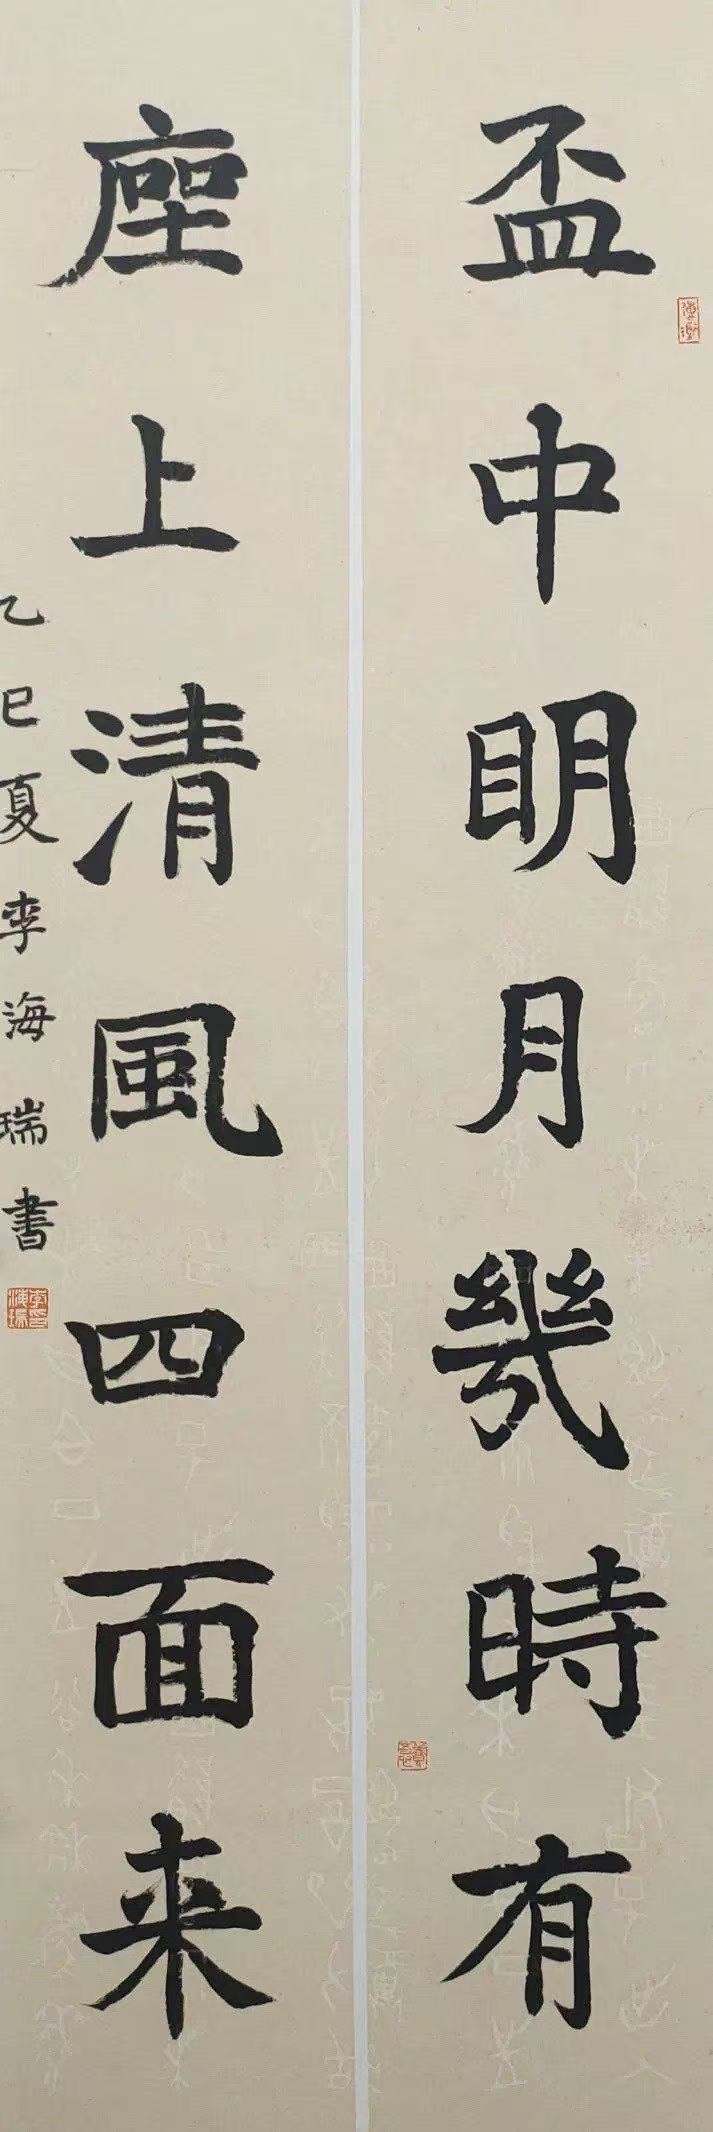 盃中明月幾時有
座上清風四面来
乙巳夏李海瑞書